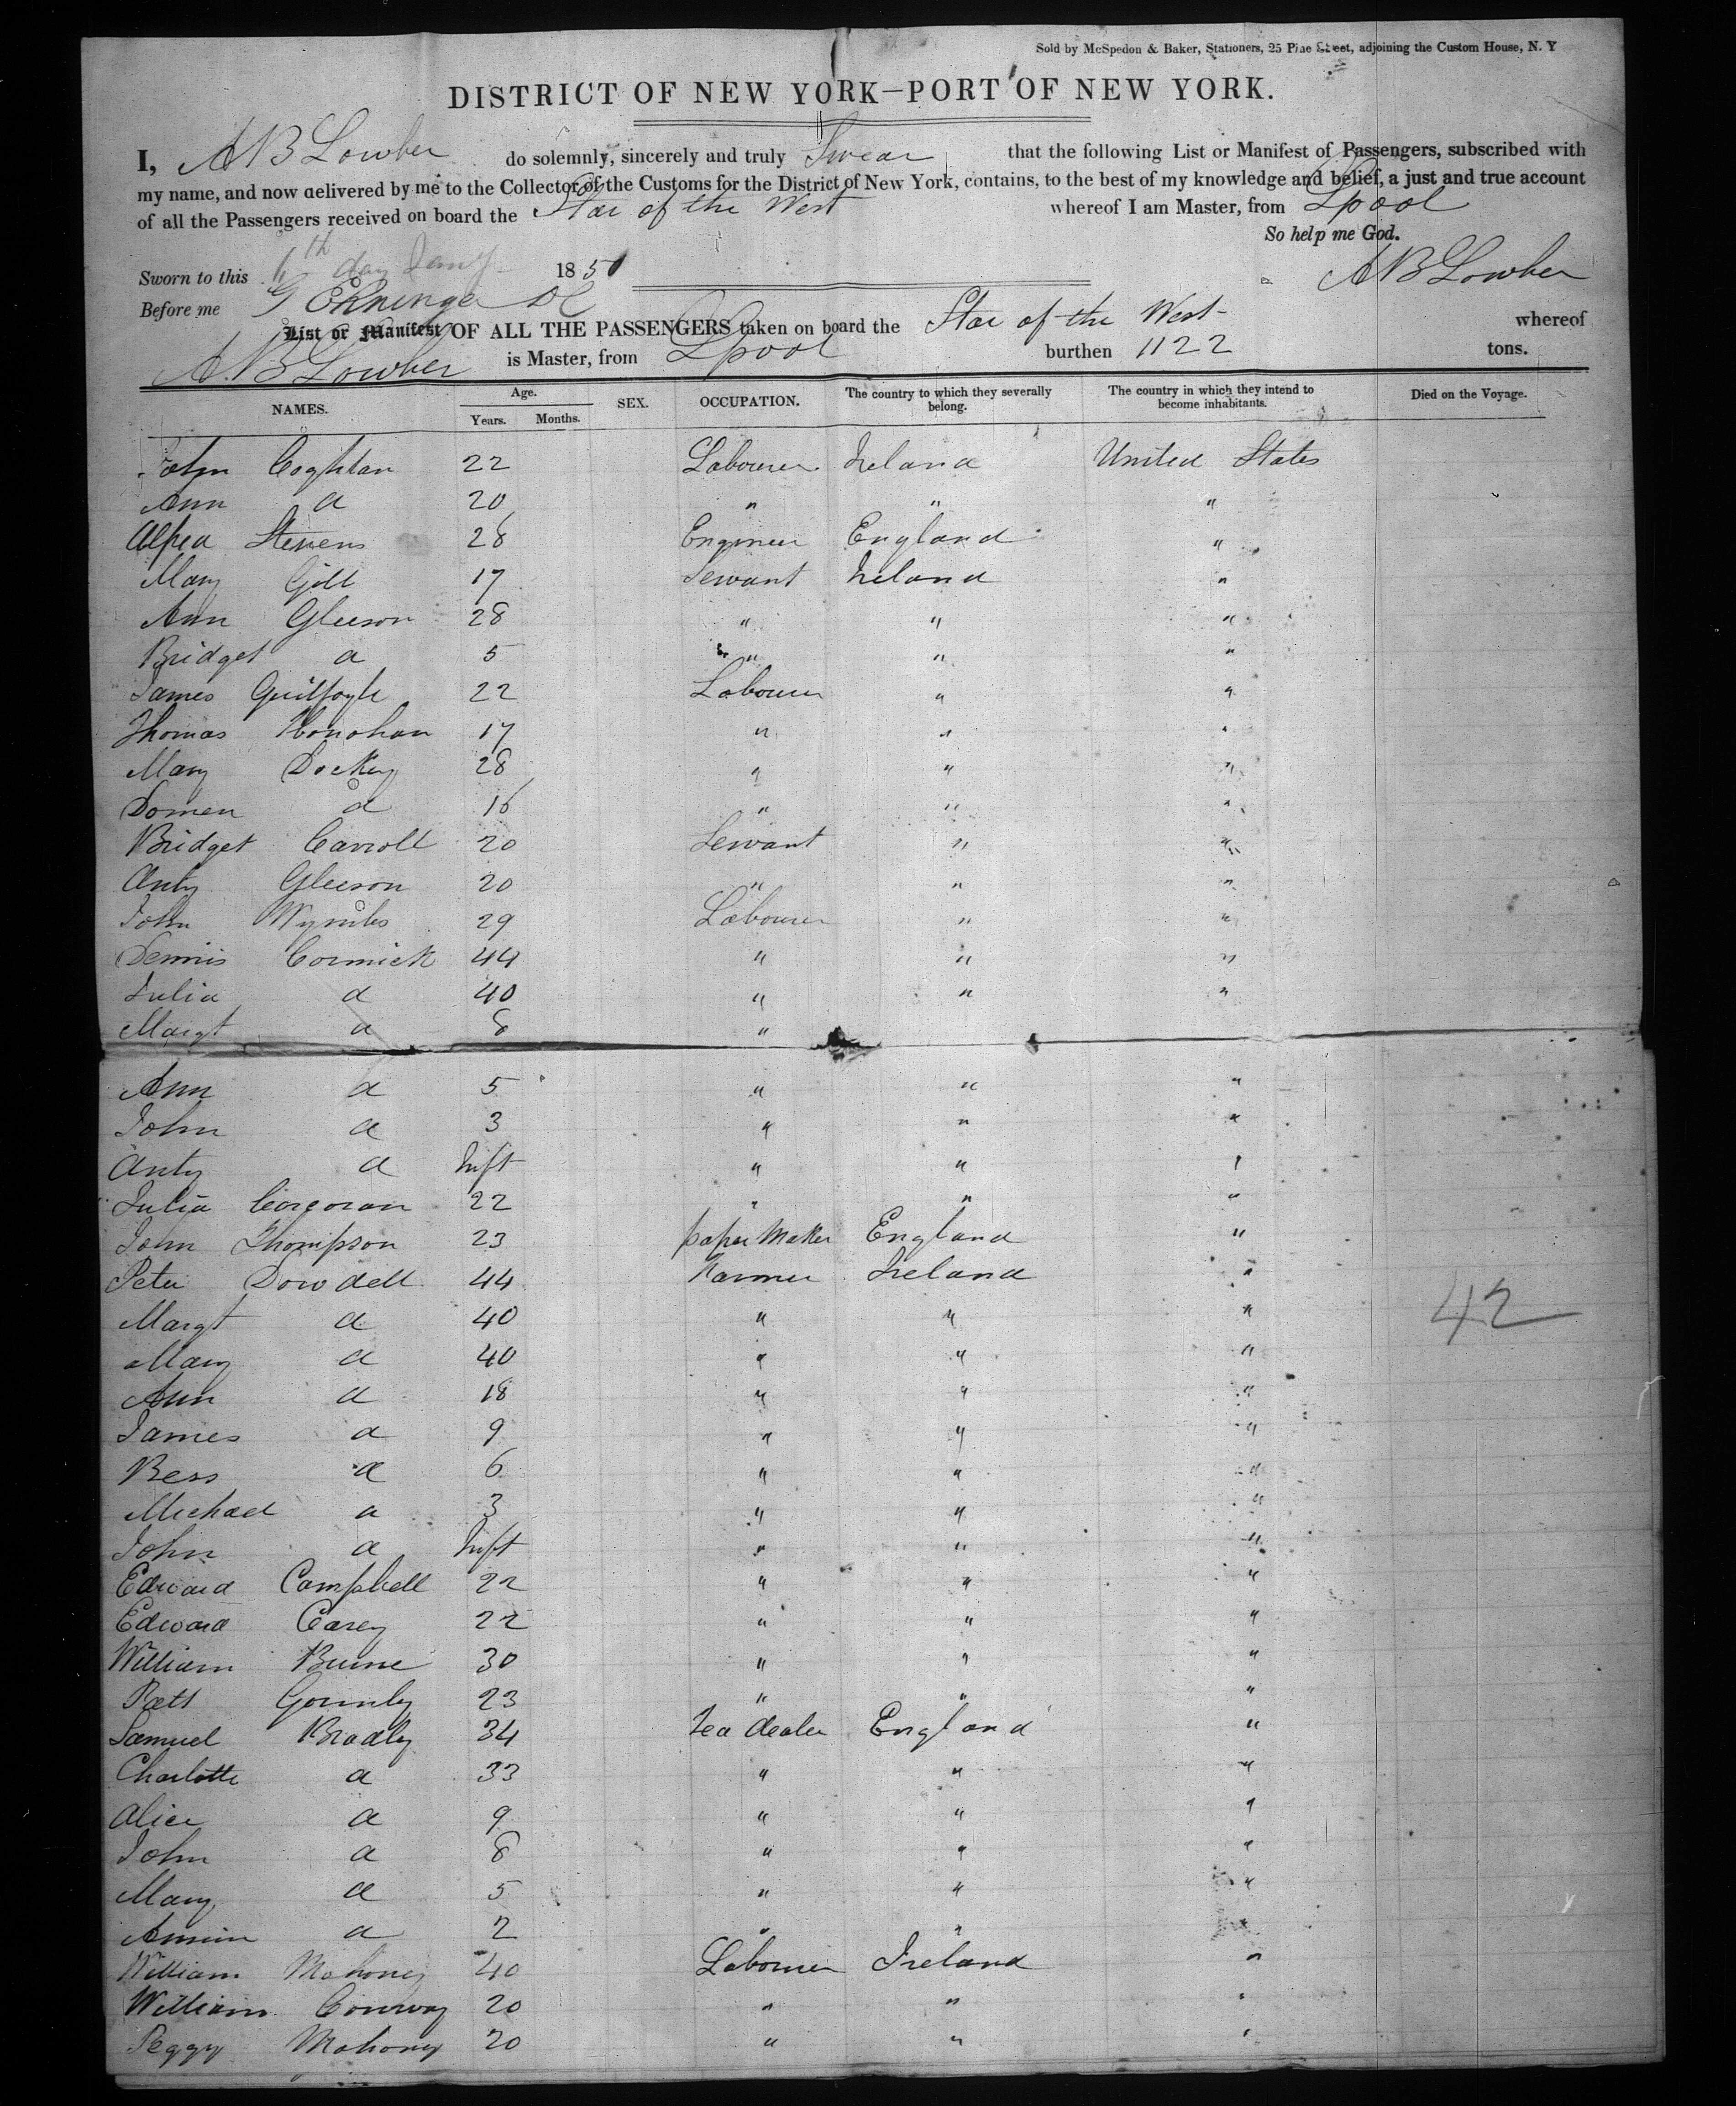 Sold by McSpedon & Baker, Stationers, 25 Pine Street, adjoining the Custom House, N. Y
DISTRICT OF NEW YORK—PORT OF NEW YORK.
I, A B Lowber do solemnly, sincerely and truly Swear that the following List or Manifest of Passengers, subscribed with
my name, and now delivered by me to the Collector of the Customs for the District of New York, contains, to the best of my knowledge and belief, a just and true account
of all the Passengers received on board the Star of the West whereof I am Master, from Lpool
So help me God.
Sworn to this day Jany 1850 A B Lowber
Before me
List or Manifest OF ALL THE PASSENGERS taken on board the Star of the West whereof
A. B Lowber is Master, from Lpool burthen 1122 tons.
NAMES. Age. Years. Months. SEX. OCCUPATION. The country to which they severally belong. The country in which they intend to become inhabitants. Died on the Voyage.
John Coghlan 22 Labourer Ireland United States
Ann d 20 " " "
Alfred Stevens 28 Engineer England "
Mary Gill 17 Servant Ireland "
Ann Gleeson 28 " " "
Bridget d 5 " " "
James Guilfoyle 22 Labourer " "
Thomas Honohan 17 " " "
Mary Dockey 28 " " "
d 16 " " "
Bridget Carroll 20 Servant " "
Anty Gleeson 20 " " "
John Wymbs 29 Labourer " "
Dennis Cormick 44 " " "
Julia d 40 " " "
Margt d 8 "
Ann d 5 " " "
John d 3 " " "
Anty d Inft " " "
Julia Corcoran 22 " " "
John Thompson 23 paper Maker England "
Peter Dowdell 44 Farmer Ireland "
Margt d 40 " " "
Mary d 40 " " "
Ann d 18 " " "
James d 9 " " "
Bess d 6 " " "
Michael d 3 " " "
John d Inft " " "
Edward Campbell 22 " " "
Edward Carey 22 " " "
William 30 " " "
Patt Gormly 23 " " "
Samuel Bradly 34 tea dealer England "
Charlotte d 33 " " "
Alice d 9 " " "
John d 8 " " "
Mary d 5 " " "
d 2 " " "
William Mahony 40 Labourer Ireland "
William Conway 20 " " "
Peggy Mahony 20 " " "
42